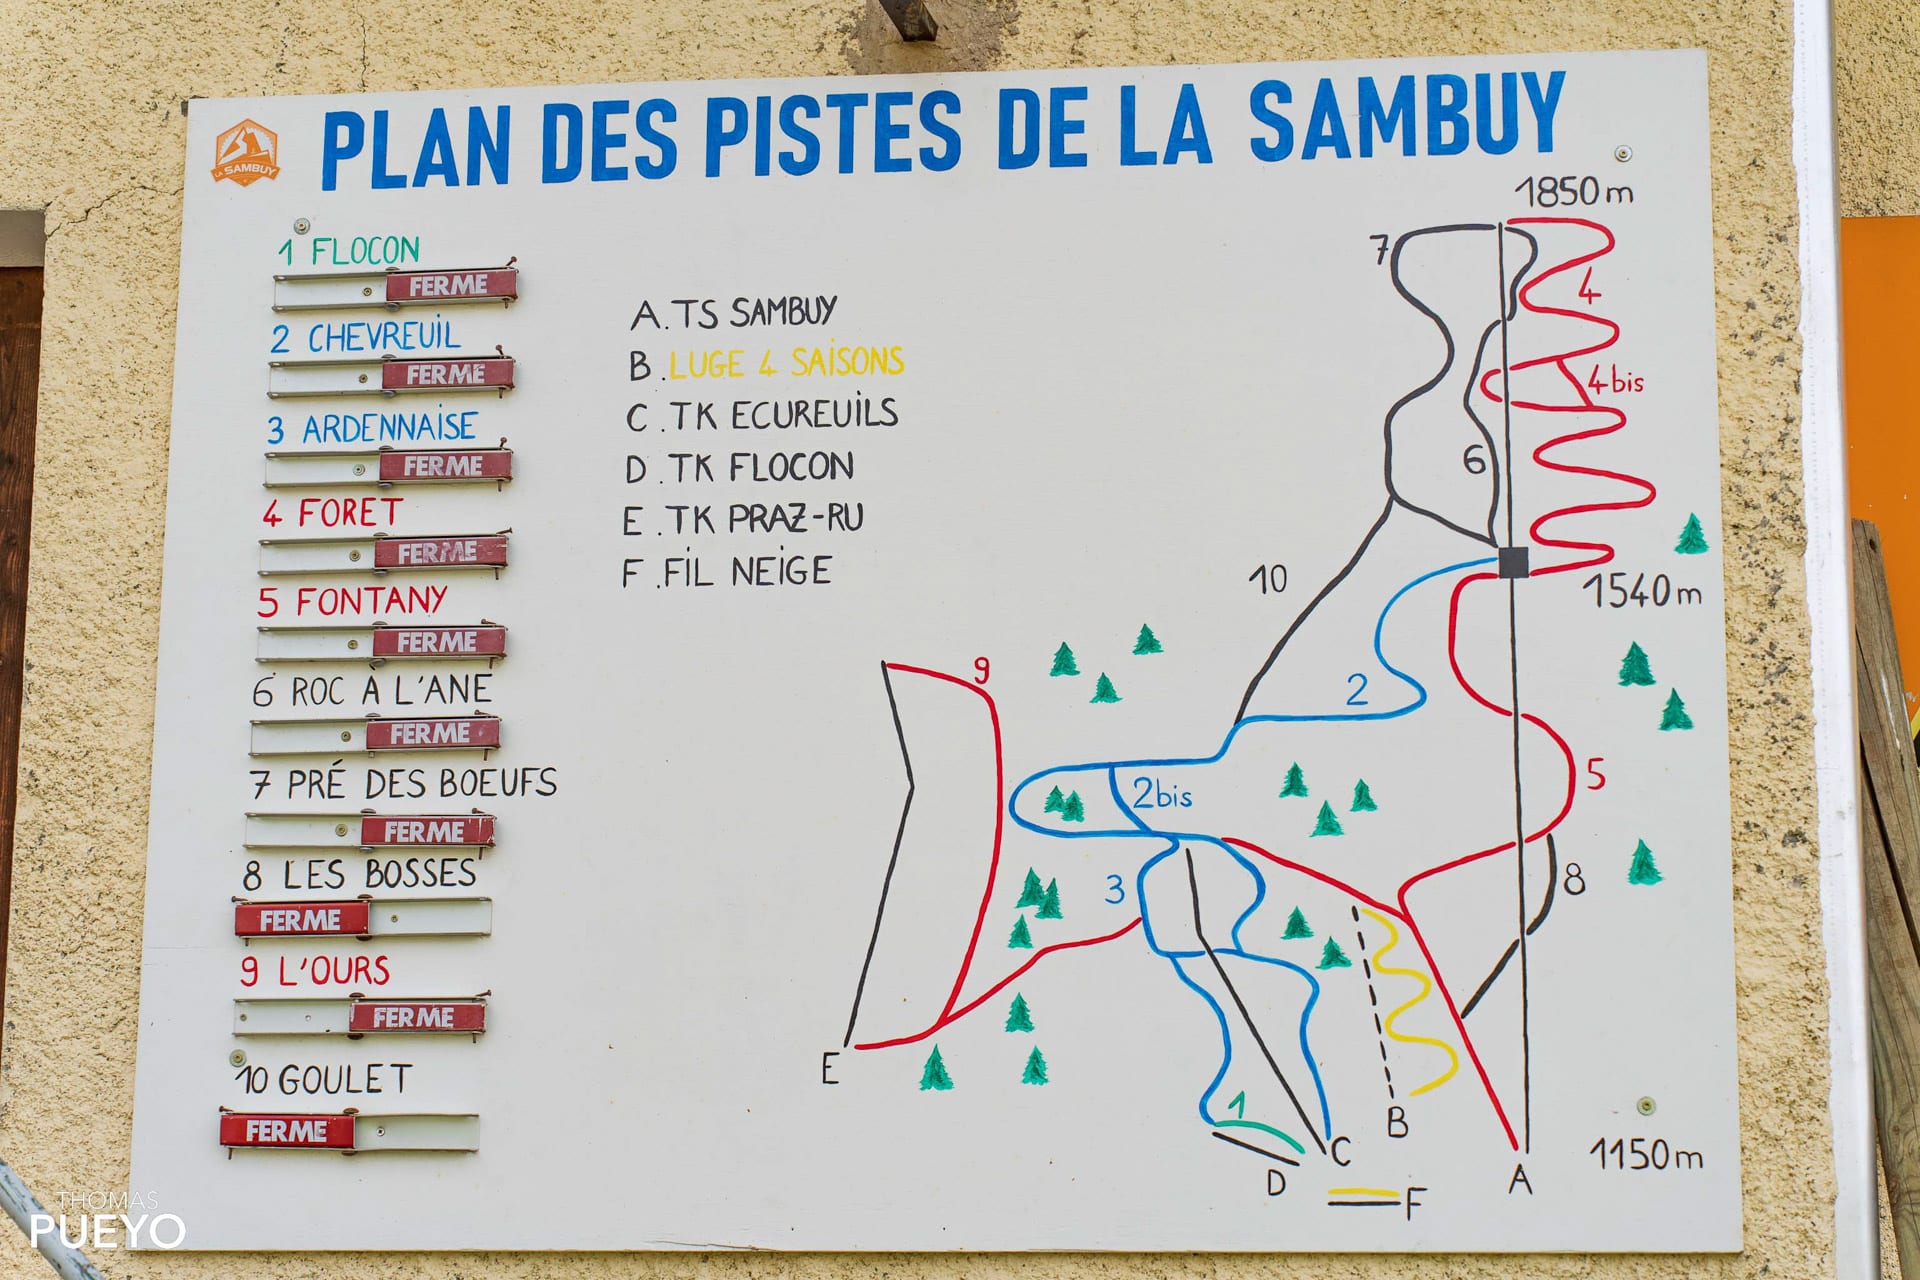 PLAN DES PISTES DE LA SAMBUY
LA SAMBUY
1 FLOCON
FERME
2 CHEVREUIL
FERME
3 ARDENNAISE
FERME
4 FORET
FERME
5 FONTANY
FERME
6 ROC A L'ANE
FERME
7 PRÉ DES BOEUFS
FERME
8 LES BOSSES
FERME
9 L'OURS
FERME
10 GOULET
FERME
A. TS SAMBUY
B. LUGE 4 SAISONS
C. TK ECUREUILS
D. TK FLOCON
E. TK PRAZ-RU
F. FIL NEIGE
1850m
7
4
4bis
6
10
1540m
9
2
5
2bis
3
8
E
1
B
C
D
F
A
1150m
THOMAS
PUEYO